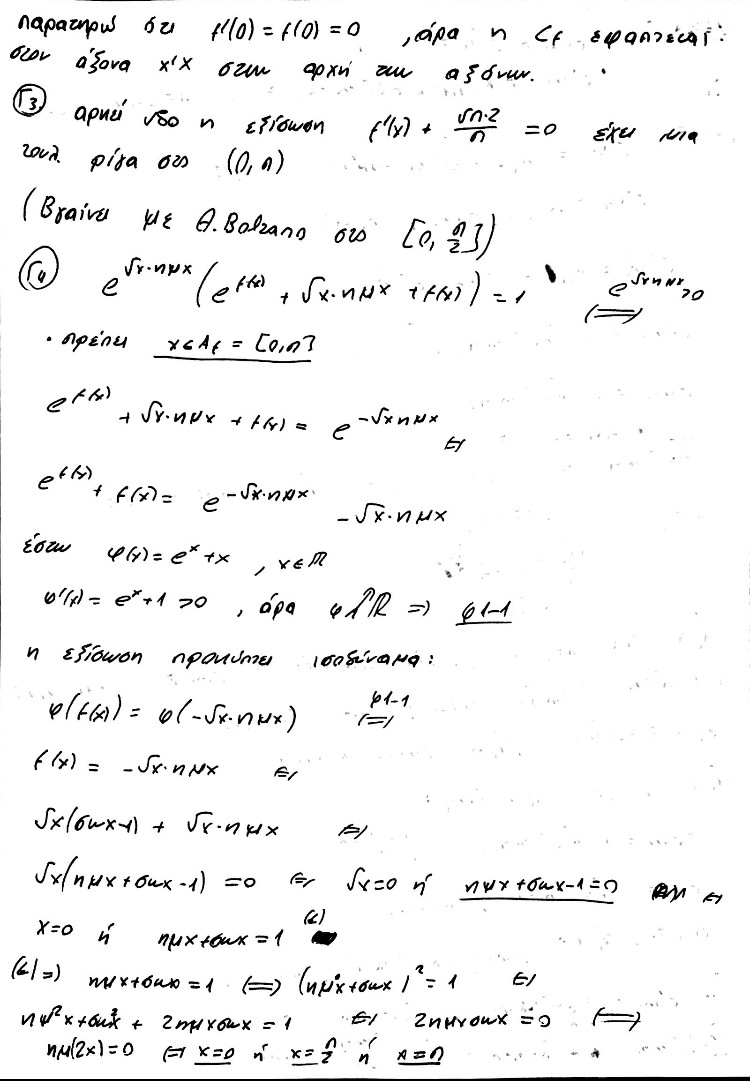 παρατηρώ ότι f'(0) = f(0) = 0 , άρα η Cf εφάπτεται
στον άξονα x'x στην αρχή των αξόνων.
Γ3 αρκεί νδο η εξίσωση f'(x) + √π·2/π = 0 έχει μια
τουλ. ρίζα στο (0, π)
(Βγαίνει με Θ.Bolzano στο [0, π/2])
Γ4 e^(√x·ημx) (e^(f(x)) + √x·ημx + f(x)) = 1 e^(√xημx)>0 (⟺)
• πρέπει x∈Af = [0,π]
e^(f(x)) + √x·ημx + f(x) = e^(-√xημx) ⟺
e^(f(x)) + f(x) = e^(-√x·ημx) - √x·ημx
έστω φ(x) = e^x + x , x∈ℝ
φ'(x) = e^x + 1 > 0 , άρα φ↑ℝ ⟹ φ1-1
η εξίσωση προκύπτει ισοδύναμα:
φ(f(x)) = φ(-√x·ημx) φ1-1 (⟺)
f(x) = -√x·ημx ⟺
√x(συνx-1) + √x·ημx ⟺
√x(ημx+συνx-1) = 0 ⟺ √x=0 ή ημx+συνx-1=0 ⟺
x=0 ή ημx+συνx=1 (ε)
(ε) ⟹ ημx+συνx=1 (⟺) (ημx+συνx)²=1 ⟺
ημ²x+συν²x + 2ημxσυνx = 1 ⟺ 2ημxσυνx = 0 (⟺)
ημ(2x)=0 (⟺ x=0 ή x=π/2 ή x=π